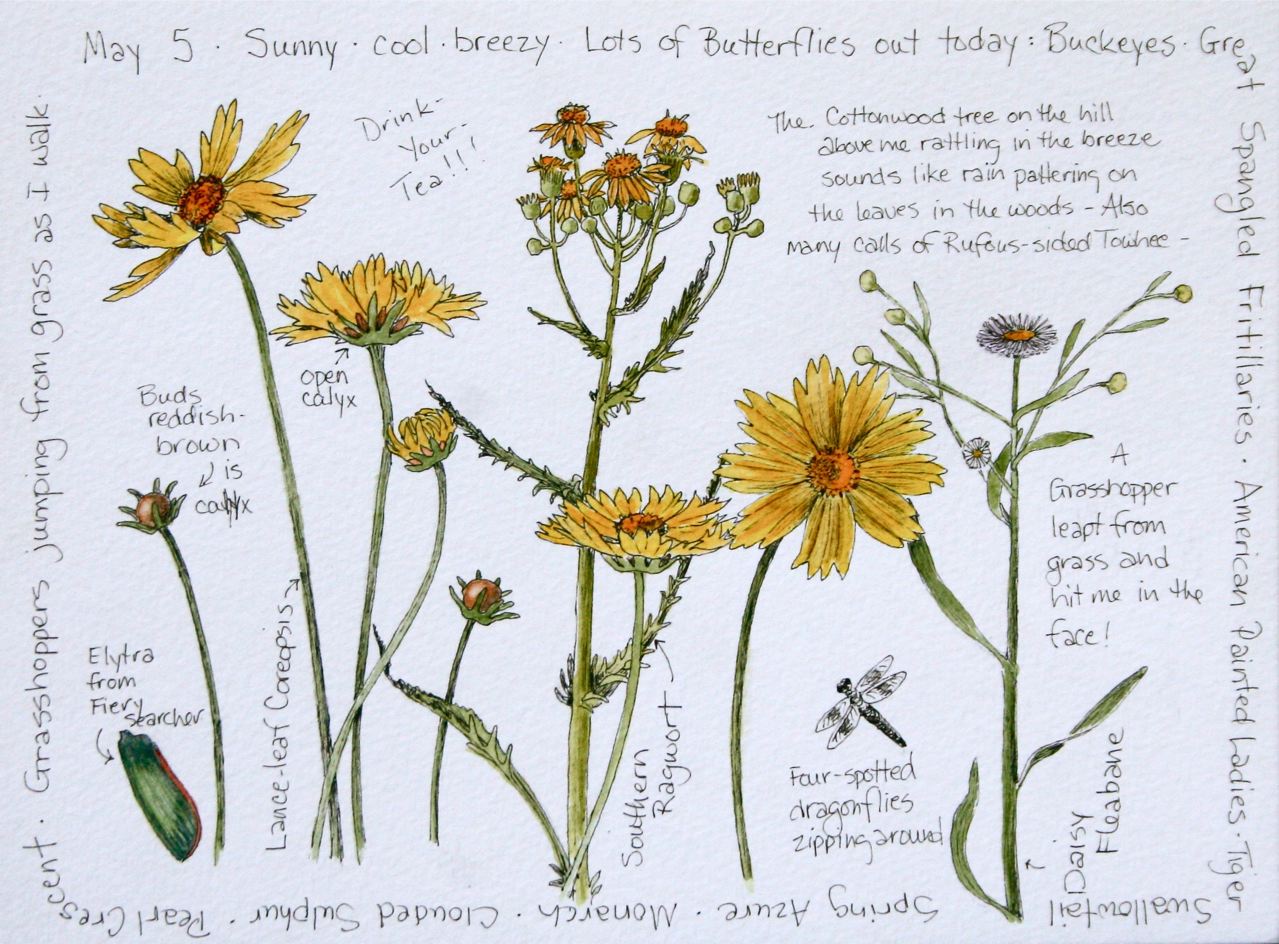 May 5 · Sunny · cool · breezy · Lots of Butterflies out today: Buckeyes · Great
Spangled Fritillaries · American Painted Ladies · Tiger
Swallowtail
Spring Azure · Monarch · Clouded Sulphur · Pearl Crescent ·
Grasshoppers jumping from grass as I walk.
Drink-
Your-
Tea!!!
The Cottonwood tree on the hill
above me rattling in the breeze
sounds like rain pattering on
the leaves in the woods - Also
many calls of Rufous-sided Towhee -
open
calyx
Buds
reddish-
brown
is
calyx
A
Grasshopper
leapt from
grass and
hit me in the
face!
Elytra
from
Fiery
searcher
Lance-leaf Coreopsis
Southern
Ragwort
Four-spotted
dragonflies
zipping around
Daisy
Fleabane